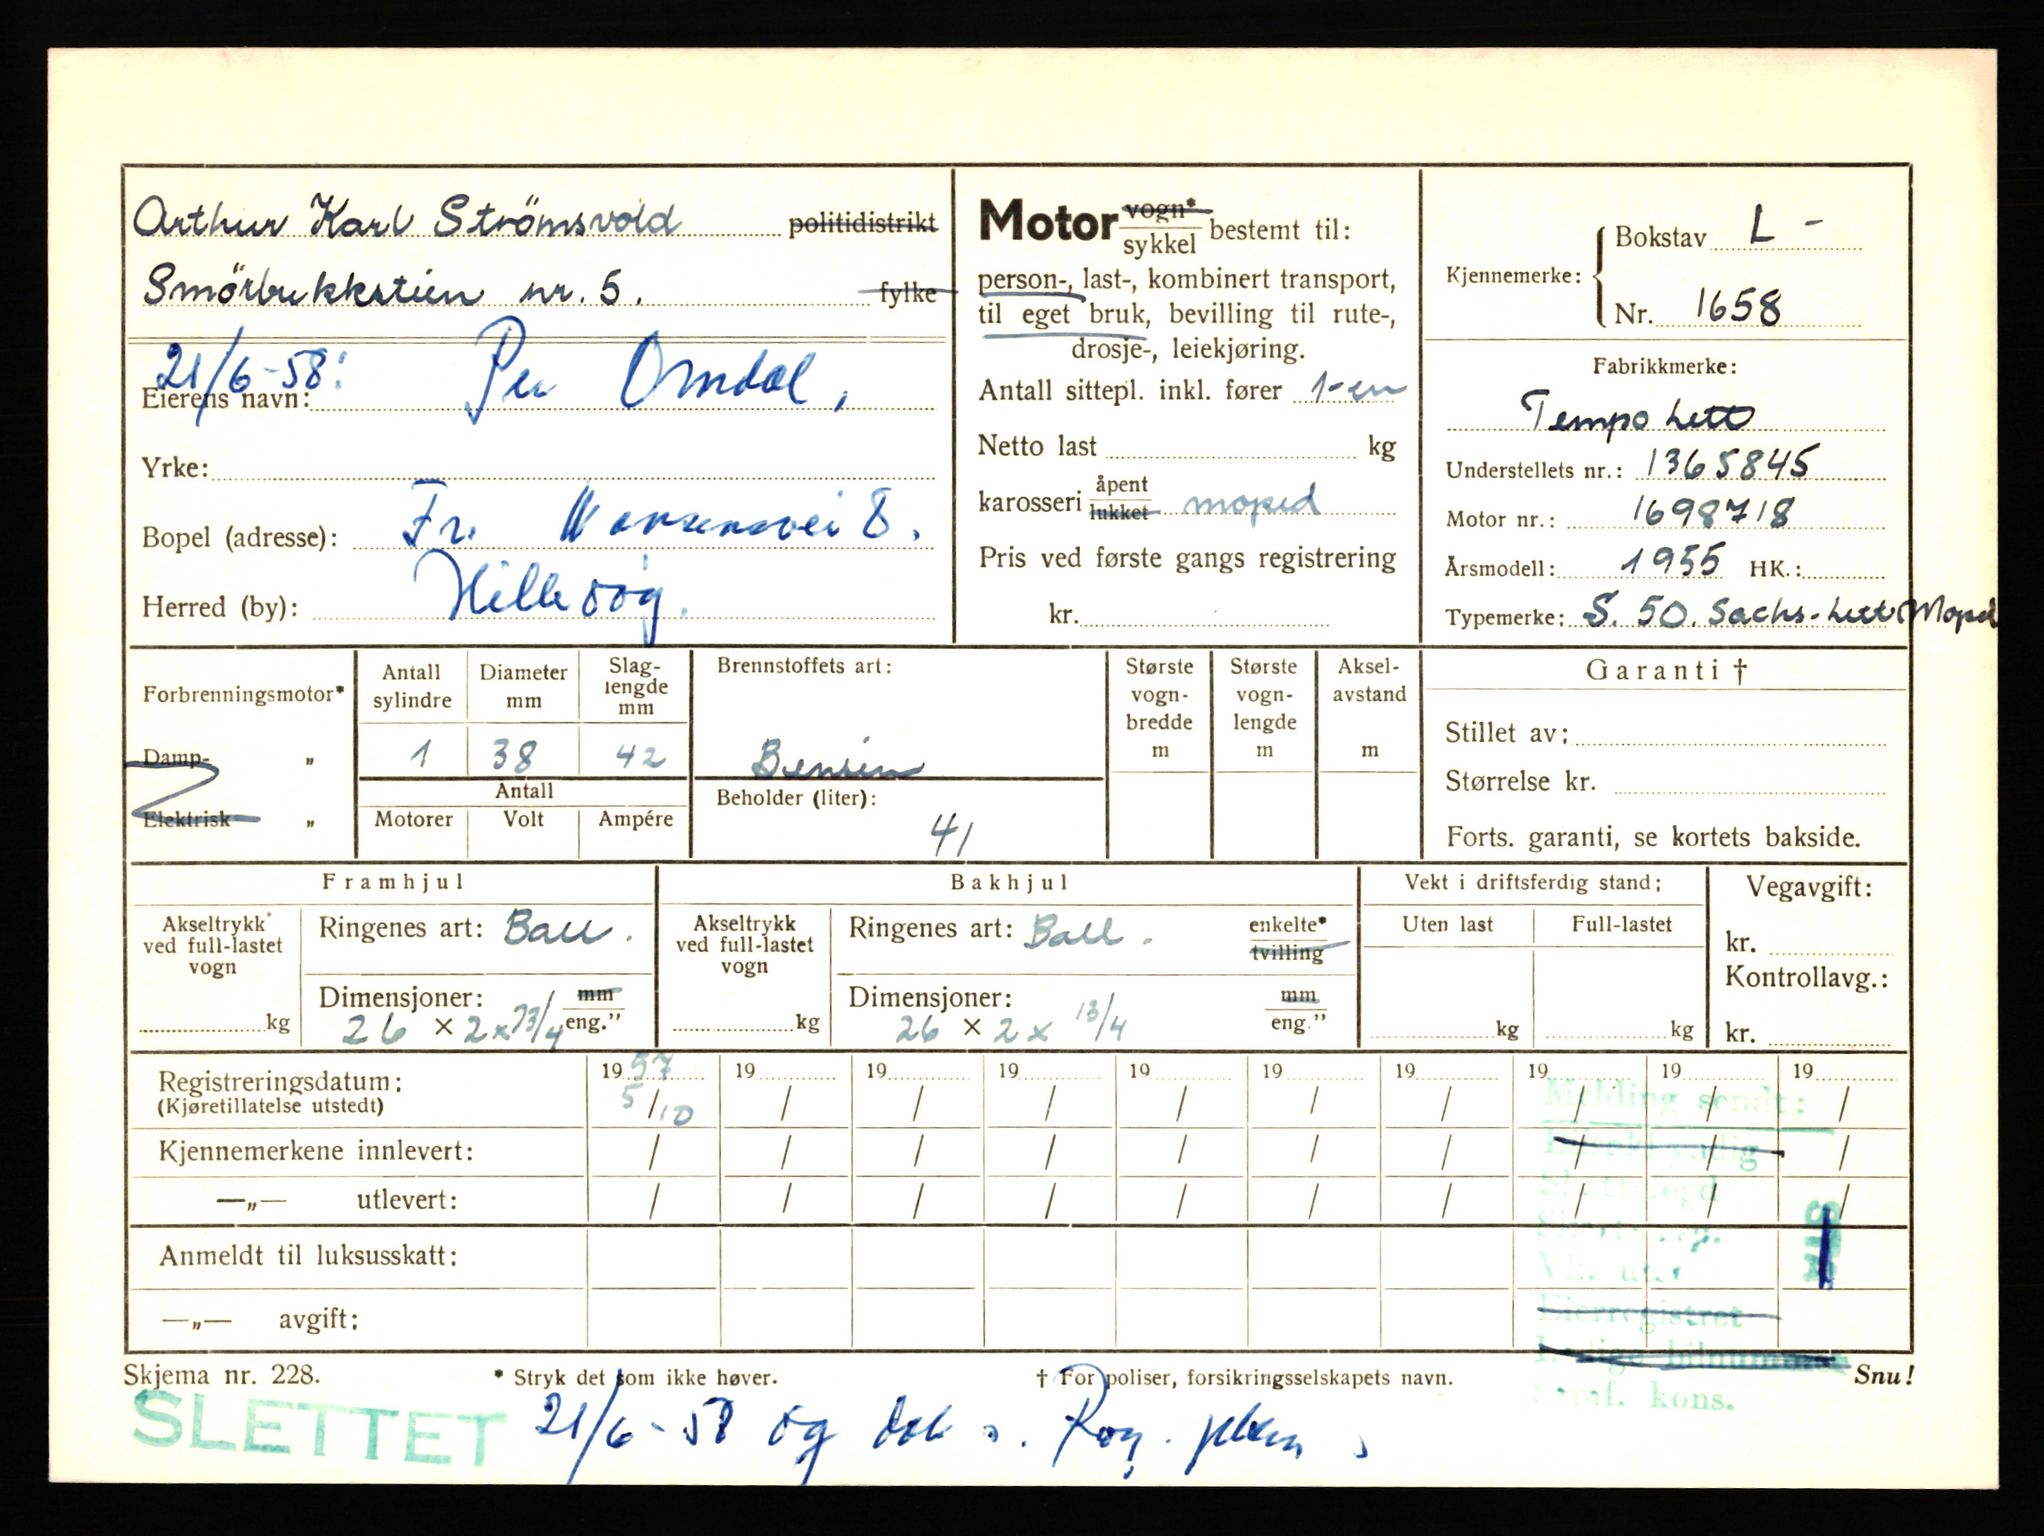 Arthur Karl Strömsvold politidistrikt
Smörbukkstien nr. 5. fylke
21/6-58: Per Omdal,
Eierens navn:
Yrke:
Bopel (adresse): Fr. Hansensvei 8.
Herred (by): Hillevåg.
Motor vogn* sykkel bestemt til:
person-, last-, kombinert transport,
til eget bruk, bevilling til rute-,
drosje-, leiekjøring.
Antall sittepl. inkl. fører 1-en
Netto last kg
karosseri åpent lukket moped
Pris ved første gangs registrering
kr.
Kjennemerke: Bokstav L -
Nr. 1658
Fabrikkmerke:
Tempo Lett
Understellets nr.: 1365845
Motor nr.: 1698718
Årsmodell: 1955 HK.:
Typemerke: S. 50. Sachs-Lett Moped
Forbrenningsmotor*
Damp- „
Elektrisk „
Antall sylindre
Diameter mm
Slag-lengde mm
1 38 42
Antall
Motorer Volt Ampére
Brennstoffets art:
Bensin
Beholder (liter):
41
Største vogn-bredde m
Største vogn-lengde m
Aksel-avstand m
Garanti †
Stillet av:
Størrelse kr.
Forts. garanti, se kortets bakside.
Framhjul
Akseltrykk ved full-lastet vogn
kg
Ringenes art: Ball.
Dimensjoner: mm
26 × 2 x 13/4 eng."
Bakhjul
Akseltrykk ved full-lastet vogn
kg
Ringenes art: Ball. enkelte* tvilling
Dimensjoner: mm
26 × 2 x 13/4 eng."
Vekt i driftsferdig stand:
Uten last Full-lastet
kg kg
Vegavgift:
kr.
Kontrollavg.:
kr.
Registreringsdatum: 19 57 19 19 19 19 19 19 19 19 19
(Kjøretillatelse utstedt) 5/10 / / / / / / / / /
Kjennemerkene innlevert: / / / / / / / / / /
—„— utlevert: / / / / / / / / / /
Anmeldt til luksusskatt:
—„— avgift:
Melding sendt:
Eierregistret
kons.
Skjema nr. 228. * Stryk det som ikke høver. † For poliser, forsikringsselskapets navn. Snu!
SLETTET 21/6-58 og